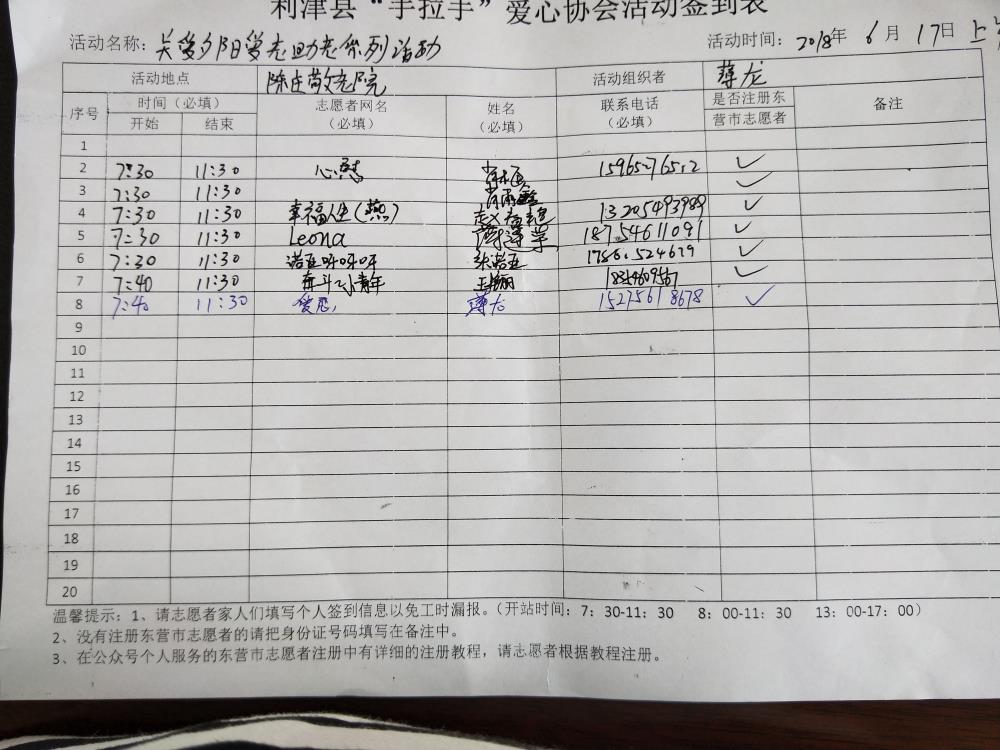 利津县“手拉手”爱心协会活动签到表
活动名称：关爱夕阳爱老助老系列活动 活动时间：2018年 6月 17日 上
活动地点 陈庄敬老院 活动组织者 薄龙
序号 时间（必填） 志愿者网名（必填） 姓名（必填） 联系电话（必填） 是否注册东营市志愿者 备注
开始 结束
1
2 7:30 11:30 ✓
3 7:30 11:30 ✓
4 7:30 11:30 幸福人生(燕) 13205493989 ✓
5 7:30 11:30 Leona 18754611091 ✓
6 7:30 11:30 诺亚呀呀呀 张诺亚 ✓
7 7:40 11:30 奋斗小青年 ✓
8 7:40 11:30 薄龙 15275618678 ✓
9
10
11
12
13
14
15
16
17
18
19
20
温馨提示：1、请志愿者家人们填写个人签到信息以免工时漏报。（开站时间：7：30-11：30 8：00-11：30 13：00-17：00）
2、没有注册东营市志愿者的请把身份证号码填写在备注中。
3、在公众号个人服务的东营市志愿者注册中有详细的注册教程，请志愿者根据教程注册。